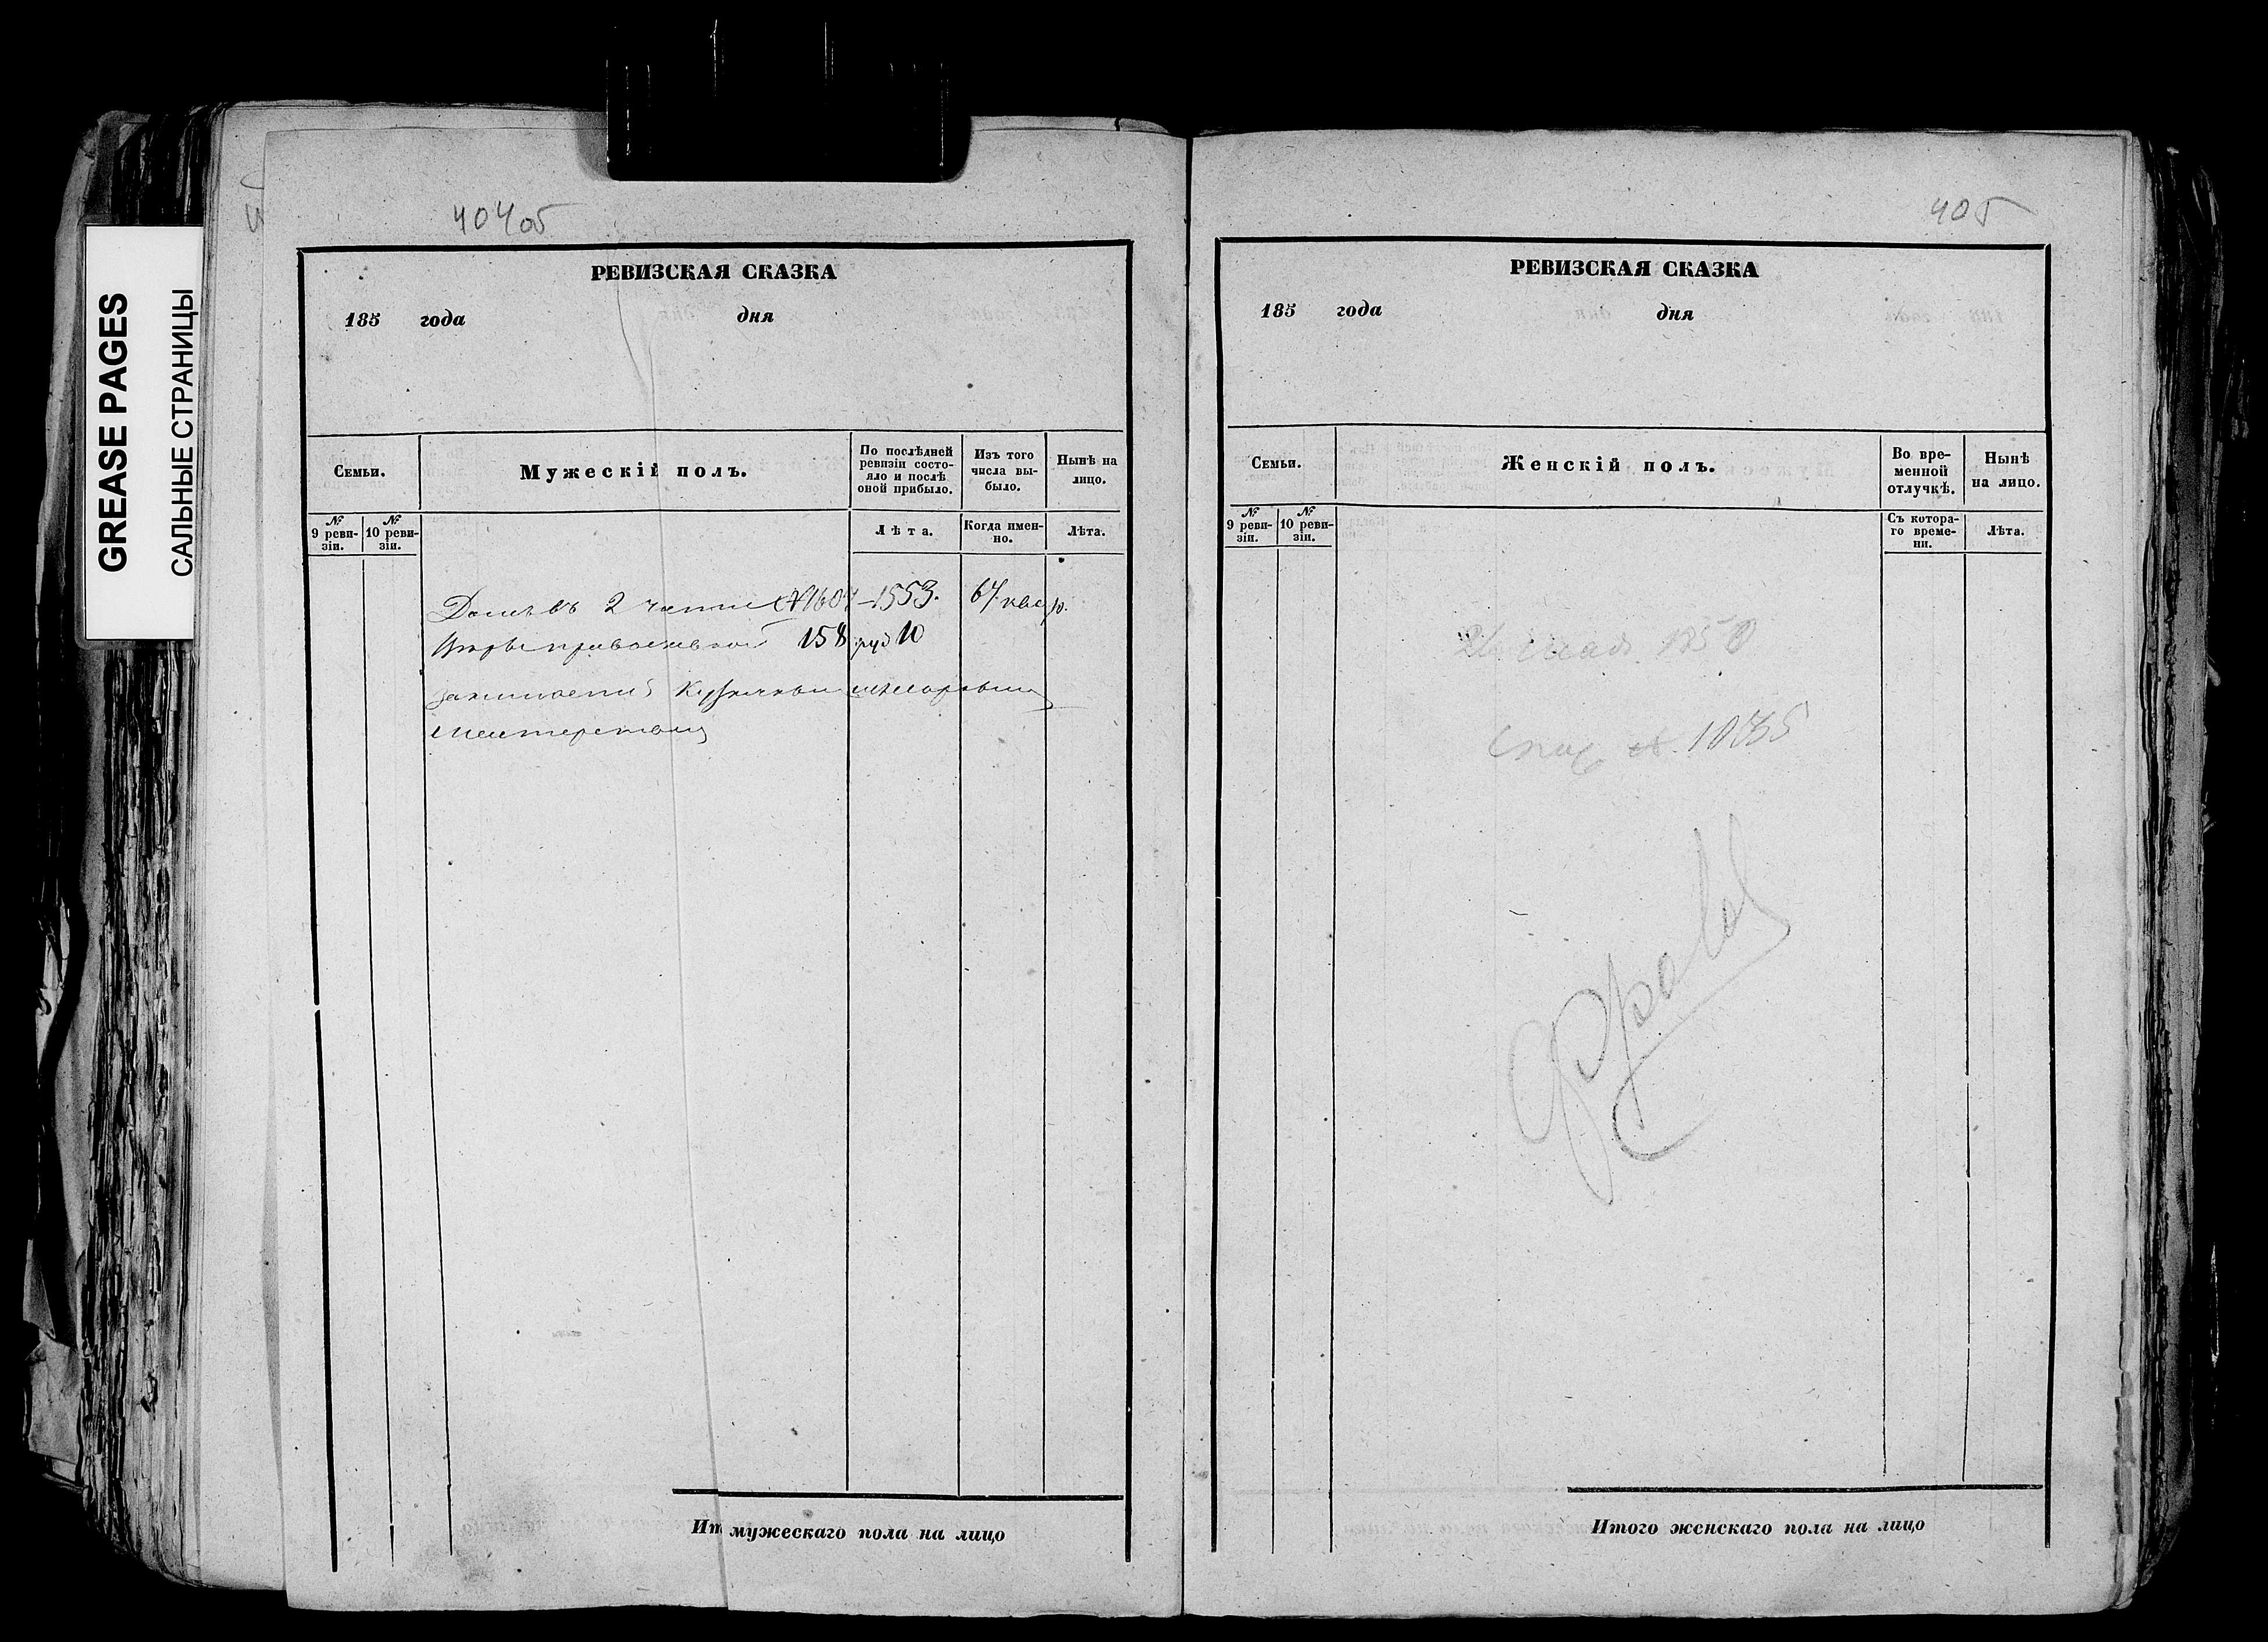 GREASE PAGES
САЛЬНЫЕ СТРАНИЦЫ
404об
РЕВИЗСКАЯ СКАЗКА
185 года дня
Семьи.
Мужескій полъ.
По послѣдней ревизіи состо-
яло и послѣ
оной прибыло.
Изъ того
числа вы-
было.
Нынѣ на
лицо.
№ 9 реви-
зіи.
№ 10 реви-
зіи.
Лѣта.
Когда имен-
но.
Лѣта.
Домъ въ 2 части № 1604 – 1553. 64 квар.
158 руб 10
занимается
мастерствомъ
Ит мужескаго пола на лицо
405
РЕВИЗСКАЯ СКАЗКА
185 года дня
Семьи.
Женскій полъ.
Во вре-
менной
отлучкѣ.
Нынѣ
на лицо.
№ 9 реви-
зіи.
№ 10 реви-
зіи.
Съ котора-
го време-
ни.
Лѣта.
Итого женскаго пола на лицо